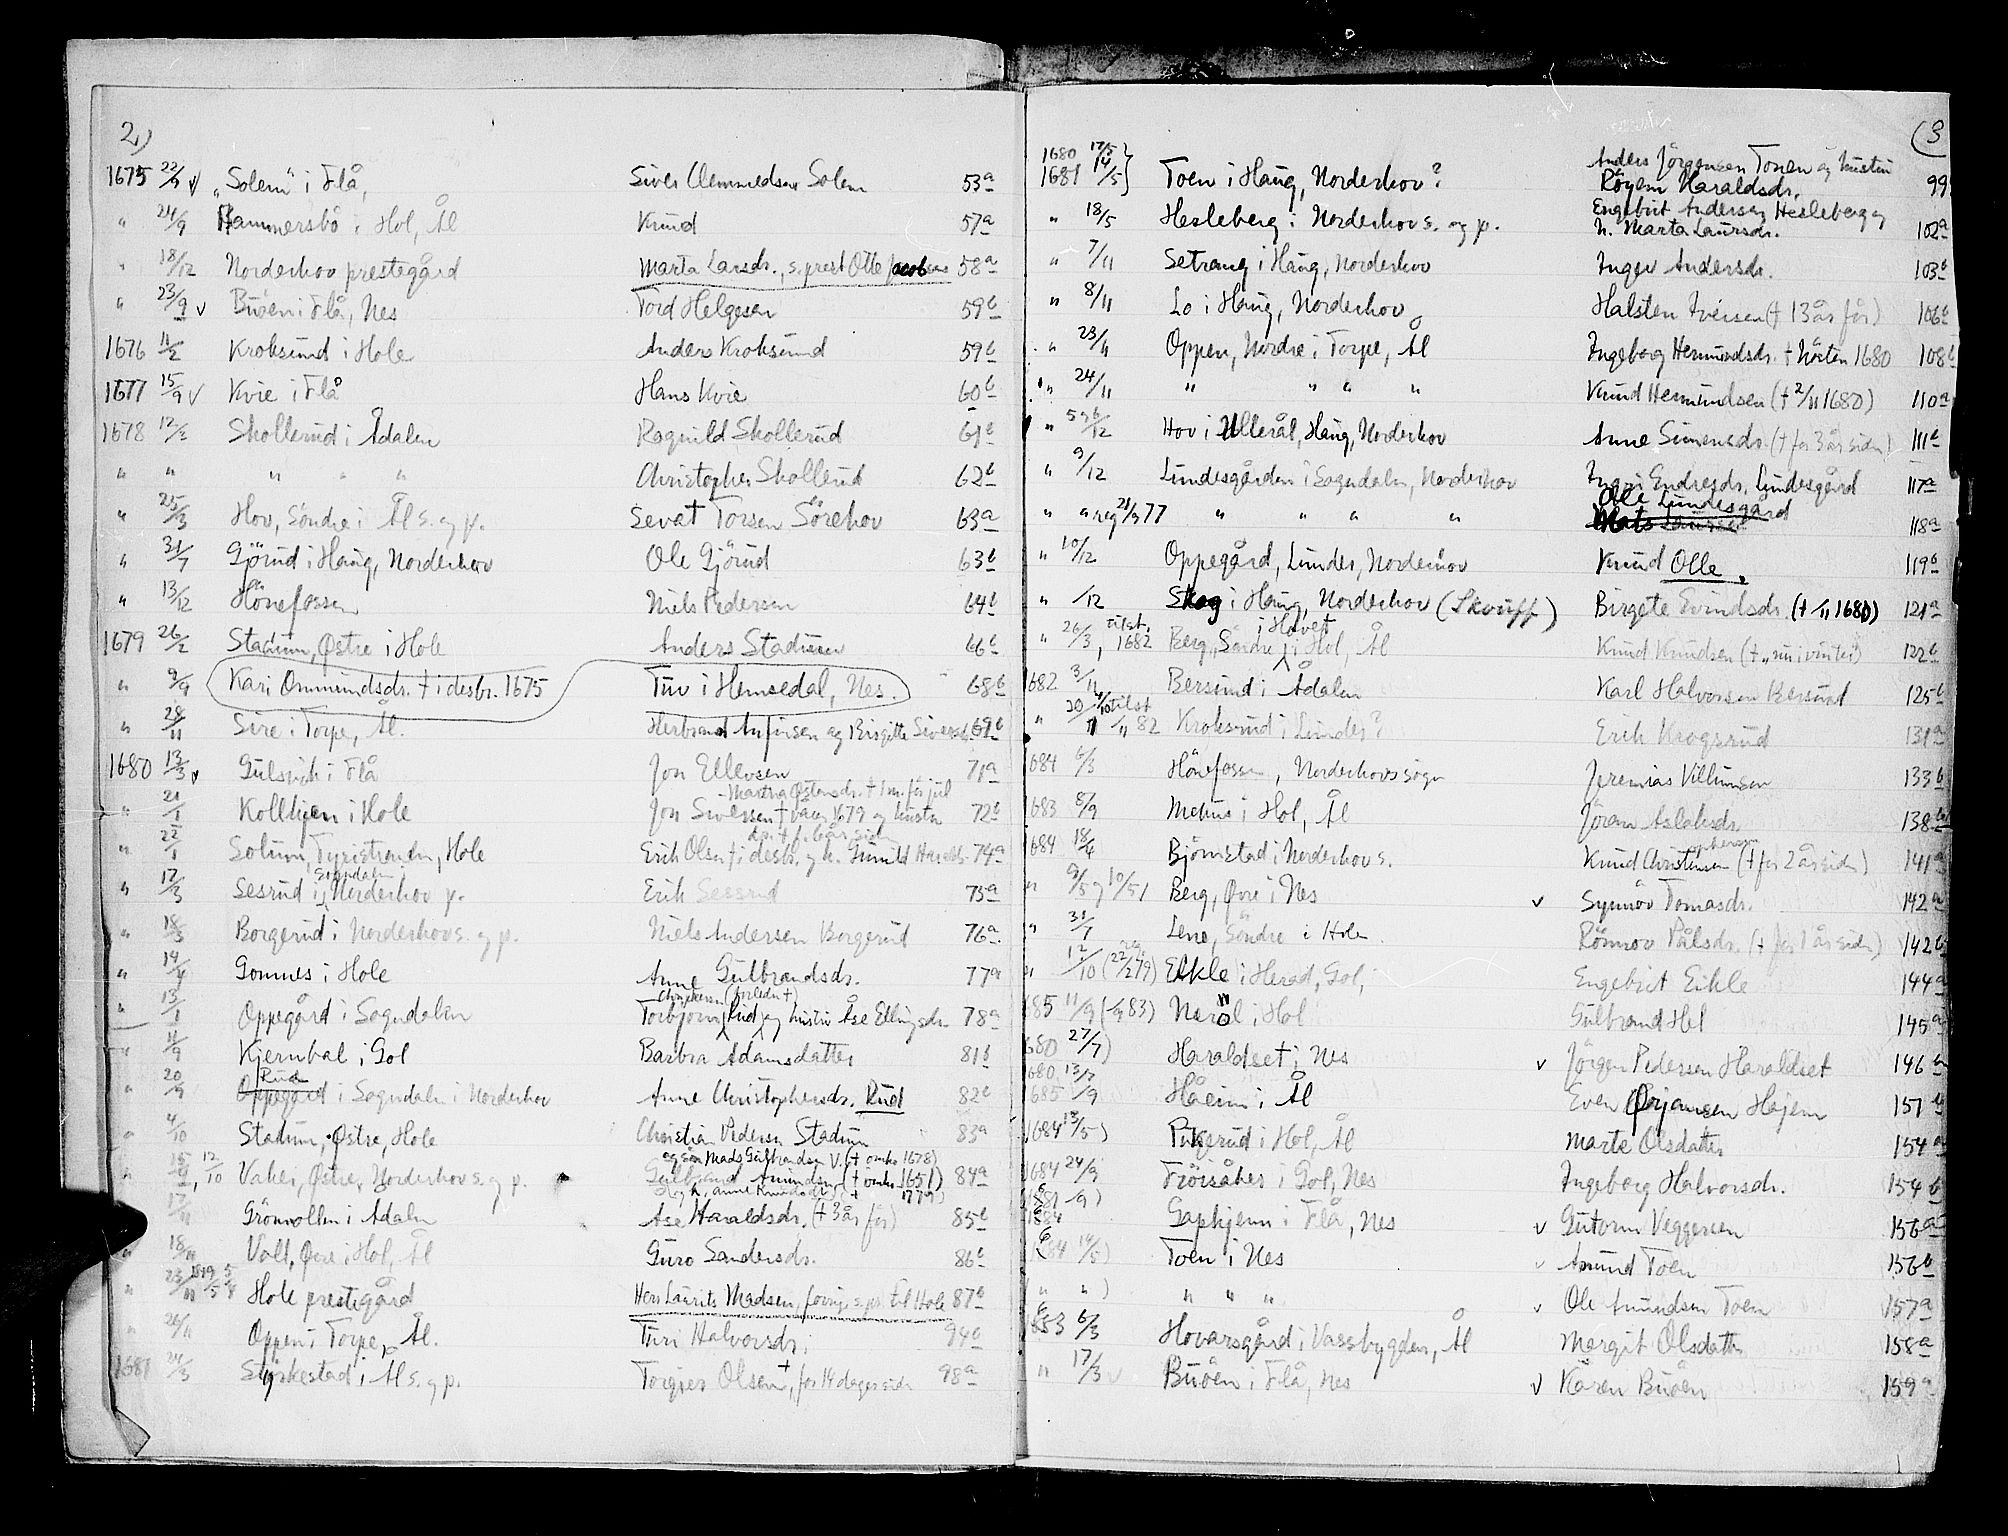 2)
1675 22/9 v "Solem" i Flå, Siver Clemmedsen Solem 53a
" 24/9 Hammersbö i Hol, Ål Knud 57a
" 18/12 Norderhov prestegård Marta Larsdr., s. prest Otte Jacobsens 58a
" 23/9 v Buöen i Flå, Nes Tord Helgesen 59b
1676 11/2 Kroksund i Hole Anders Kroksund 59b
1677 15/9 v Kvie i Flå Hans Kvie 60b
1678 12/2 Skollerud i Ådalen Ragnild Skollerud 61b
" " " " " Christopher Skollerud 62b
" 25/3 Hov, Söndre i Ål s. og p. Sevat Torsen Sörehov 63a
" 31/7 Gjörud i Haug, Norderhov Ole Gjörud 63b
" 13/12 Hönefossen Niels Pedersen 64b
1679 26/2 Stadum, Østre i Hole Anders Stadum 66b
" 9/9 Kari Ommundsdr. † i desbr. 1675 Tuv i Hemsedal, Nes. 68b
" 28/11 Sire i Torpe, Ål. Herbrand Anfinsen og Birgitte Siversd. 69b
1680 13/3 v Gulsvik i Flå Jon Ellevsen 71a
Martha Østensdr. † 1 m. før jul
" 21/1 Kolkjen i Hole Jon Sivessen † våren 1679 og hustru 72b
" 22/1 Solum, Tyristranden, Hole Erik Olsen † i desbr. og h. Gunild Haralds- 74a
Sogndalen
" 17/3 Sesrud i Norderhov p. Erik Sessrud 75a
" 18/3 Borgerud i Norderhov s. og p. Niels Andersen Borgerud 76a
" 14/4 Gomnes i Hole Anne Gulbrandsdr. 77a
" 13/1 Oppegård i Sogndalen Torbjørn Rud og hustru Åse Ellingsdr. 78a
" 11/9 Kjernbal i Gol Barbra Adamsdatter 81b
Rud
" 20/9 Oppegård i Sogndalen i Norderhov Anne Christophersdr. Rud 82b
" 4/10 Stadum, Østre, Hole Christian Pedersen Stadum 83a
og søn Mads Gulbrandsen V. († omkr. 1678)
12/10 Vaker, Østre, Norderhov s. og p. Gulbrand Amundsen († omkr. 1651) 84a
17/11 Grönvollen i Ådalen Åse Haraldsdr. († 3 år før) 85b
" 18/11 Voll, Øvre i Hol, Ål Guro Sandersdr. 86b
" 23/11 Hole prestegård Herr Laurits Madsen, forrige s. pr. til Hole 87b
" 26/11 Oppen i Torpe, Ål. Turi Halvorsdr. 94b
1681 24/3 Styrkestad i Ål s. og p. Torgier Olsen †, for 14 dager siden 98a

(3
1680 17/5 } Anders Jörgensen Toen og hustru
1681 14/5 } Toen i Haug, Norderhov? Röyem Haraldsdr. 99
Engebret Andersen Hesleberg og
" 18/5 Hesleberg i Norderhov s. og p. h. Marta Laursdr. 102a
" 7/11 Setrang i Haug, Norderhov Inger Andersdr. 103b
" 8/11 Lo i Haug, Norderhov Halsten Iversen († 13 år før) 106b
" 23/11 Oppen, Nordre i Torpe, Ål Ingeborg Hermundsdr. † hösten 1680 108b
" 24/11 " " " " Knud Hermundsen († 2/11 1680) 110a
" 5 og 6/12 Hov i Ullerål, Haug, Norderhov Anne Simensdr. († for 3 år siden) 111b
" 9/12 Lundesgården i Sogndalen, Norderhov Ingri Endresdr. Lundesgård 117a
" " og 21/9 77 " " " " Olle Lundesgård 118a
" 10/12 Oppegård, Lunder, Norderhov Knud Olle 119b
" /12 Skog i Haug, Norderhov (Skouff) Birgete Evindsdr. († /11 1680) 121a
" 26/3, tilst. 1682 Berg, Söndre i Hovet i Hol, Ål Knud Knudsen († "nu i vinter") 122b
682 3/11 Bersund i Ådalen Karl Halvorsen Bersund 125b
" 20/10 tilst. /11 82 Kroksrud i Lunder? Erik Krogsrud 131a
684 6/3 Hönefossen, Norderhovs sogn Jeremias Villumsen 133b
683 8/9 Mehus i Hol, Ål Jöran Aslaksdr. 138b
684 18/4 Björnstad i Norderhov s. Knud Christensen († for 2 år siden) 141a
" 9/5 og 10/5 Berg, Øvre i Nes v Synnöv Tomasdr. 142a
" 31/7 Lene, Söndre i Hole. Rönnov Pålsdr. († for 1 år siden) 142b
" 12/10 (22/2 79) Eikle i Herad, Gol, Engebret Eikle 144a
685 11/9 (/9 83) Nerol i Hol Gulbrand Hol 145a
680 27/7) Haraldset i Nes v Jörgen Pedersen Haraldset 146a
680 13/7
685 /9 Håeim i Ål Even Ørjansen Hajem 151b
1684 13/5) Pukerud i Hol, Ål Marte Olsdatter 154a
1684 24/9 Fröisåker i Gol, Nes Ingeborg Halvorsdr. 154b
1684 Gapkjenn i Flå, Nes v Gutorm Veggersen 156a
684 14/5) Toen i Nes v Amund Toen 156b
" " ) " " " v Ole Amundsen Toen 157a
683 6/3 Hovarsgård i Vassbygden, Ål Margit Olsdatter 158a
" 17/3 v Buöen i Flå, Nes v Karen Buöen 159a